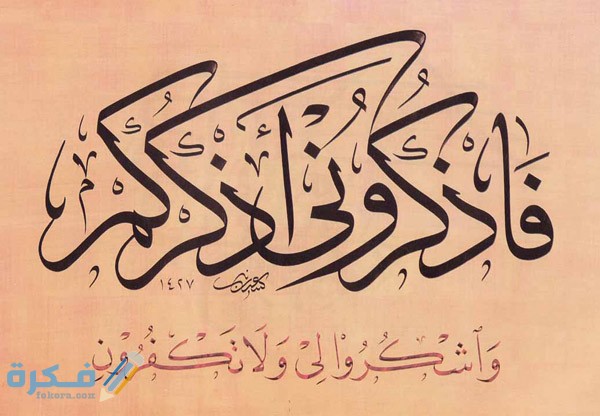 فَاذْكُرُونِي أَذْكُرْكُمْ
١٤٢٧
وَٱشْكُرُوا۟ لِى وَلَا تَكْفُرُونِ
فكرة
fekera.com